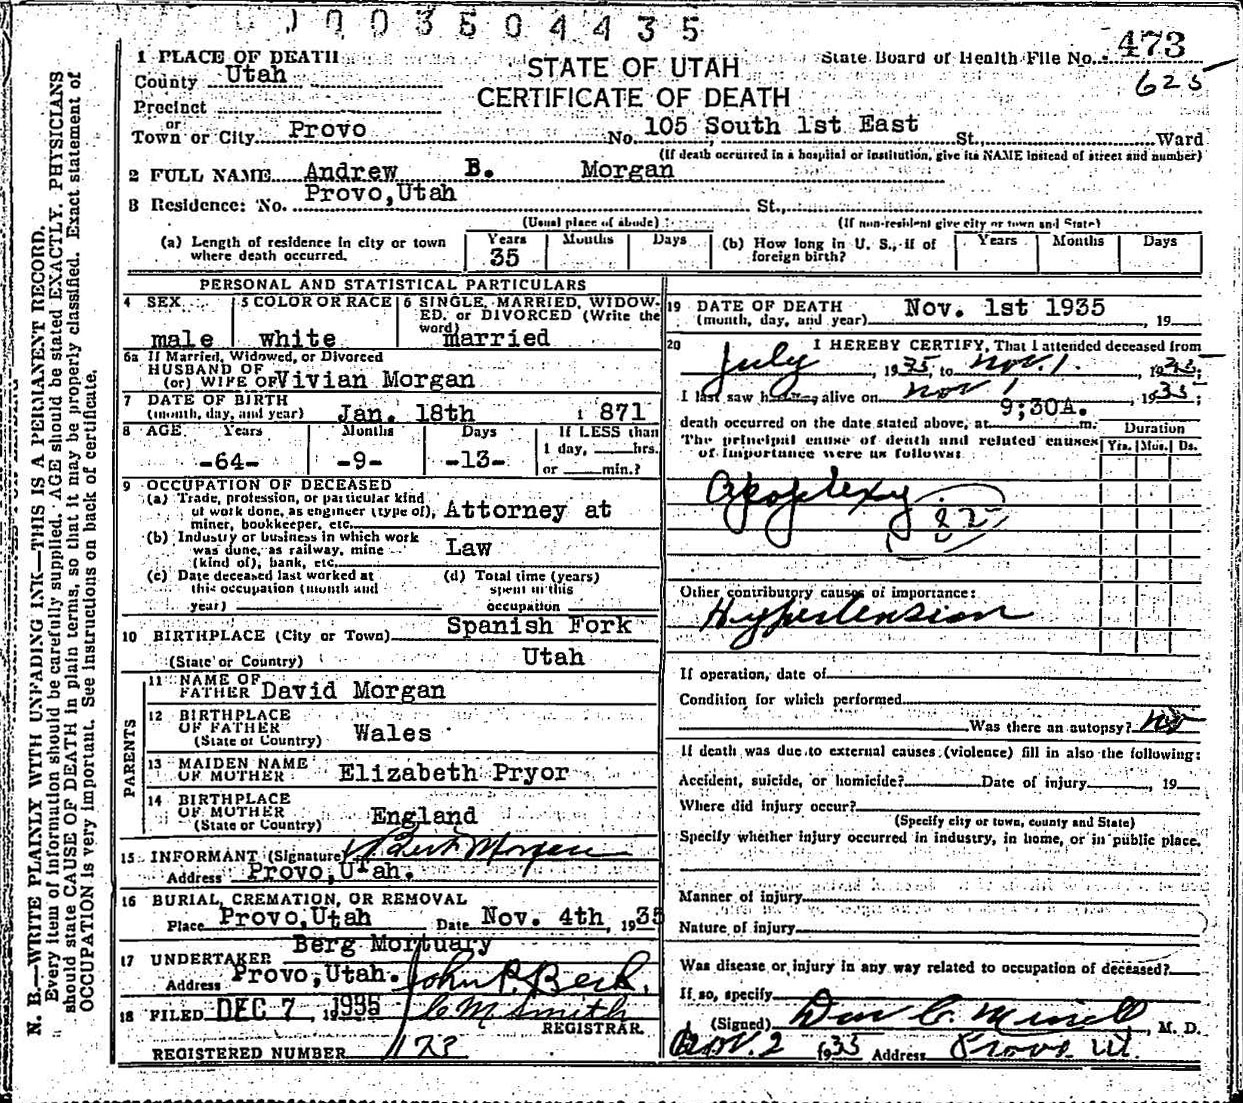 0003504435
473
625
1 PLACE OF DEATH
STATE OF UTAH
CERTIFICATE OF DEATH
State Board of Health File No.
County Utah
Precinct
or
Town or City Provo No. 105 South 1st East St., Ward
(If death occurred in a hospital or institution, give its NAME instead of street and number)
2 FULL NAME Andrew B. Morgan
3 Residence: No. Provo,Utah St.,
(Usual place of abode) (If non-resident give city or town and State)
(a) Length of residence in city or town where death occurred. Years 35 Months Days
(b) How long in U. S., if of foreign birth? Years Months Days
PERSONAL AND STATISTICAL PARTICULARS
4 SEX male
5 COLOR OR RACE white
6 SINGLE, MARRIED, WIDOW-
ED, or DIVORCED (Write the
word) married
6a If Married, Widowed, or Divorced
HUSBAND OF
(or) WIFE OF Vivian Morgan
7 DATE OF BIRTH
(month, day, and year) Jan. 18th 1871
8 AGE Years Months Days If LESS than
1 day, hrs.
-64- -9- -13- or min.?
9 OCCUPATION OF DECEASED
(a) Trade, profession, or particular kind
of work done, as engineer (type of),
miner, bookkeeper, etc. Attorney at
(b) Industry or business in which work
was done, as railway, mine
(kind of), bank, etc. Law
(c) Date deceased last worked at
this occupation (month and
year)
(d) Total time (years)
spent in this
occupation
10 BIRTHPLACE (City or Town) Spanish Fork
(State or Country) Utah
PARENTS
11 NAME OF
FATHER David Morgan
12 BIRTHPLACE
OF FATHER
(State or Country) Wales
13 MAIDEN NAME
OF MOTHER Elizabeth Pryor
14 BIRTHPLACE
OF MOTHER
(State or Country) England
15 INFORMANT (Signature) Morgan
Address Provo,Utah.
16 BURIAL, CREMATION, OR REMOVAL
Place Provo,Utah Date Nov. 4th, 1935
17 UNDERTAKER Berg Mortuary
Address Provo,Utah. John P. Berk.
18 FILED DEC 7, 1935 C M Smith
REGISTRAR
REGISTERED NUMBER 173
19 DATE OF DEATH Nov. 1st 1935
(month, day, and year) , 19
20 I HEREBY CERTIFY, That I attended deceased from
July, 1935, to Nov. 1, 1935;
I last saw h alive on Nov 1, 1935;
death occurred on the date stated above, at 9;30A. m.
The principal cause of death and related causes
of importance were as follows:
Duration
Yrs. Mos. Ds.
Apoplexy 82
Other contributory causes of importance:
Hypertension
If operation, date of
Condition for which performed
Was there an autopsy? no
If death was due to external causes (violence) fill in also the following:
Accident, suicide, or homicide? Date of injury , 19
Where did injury occur?
(Specify city or town, county and State)
Specify whether injury occurred in industry, in home, or in public place.
Manner of injury
Nature of injury
Was disease or injury in any way related to occupation of deceased?
If so, specify
(Signed) Don C. M. D.
Nov. 2 1935 Address Provo Ut.
N. B.—WRITE PLAINLY WITH UNFADING INK—THIS IS A PERMANENT RECORD.
Every item of information should be carefully supplied. AGE should be stated EXACTLY. PHYSICIANS
should state CAUSE OF DEATH in plain terms, so that it may be properly classified. Exact statement of
OCCUPATION is very important. See instructions on back of certificate.